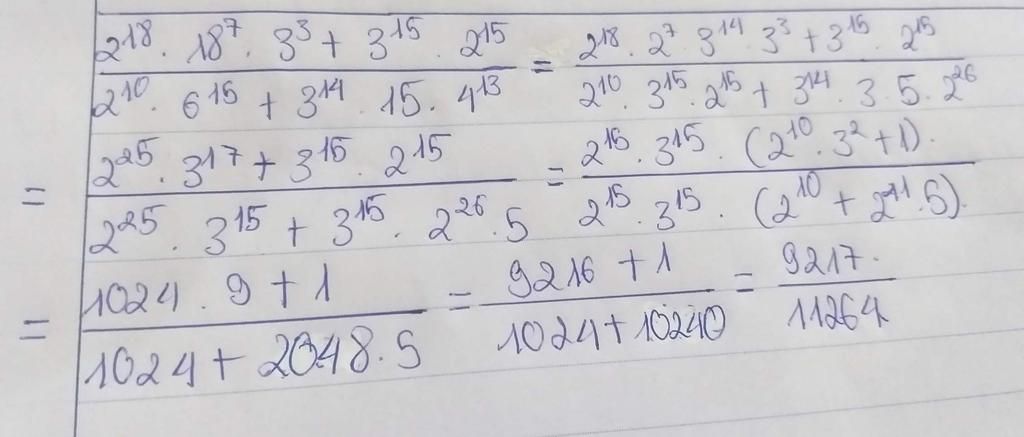 2^18 · 18^7 · 3^3 + 3^15 · 2^15 / 2^10 · 6^15 + 3^14 · 15 · 4^13 = 2^18 · 2^7 · 3^14 · 3^3 + 3^15 · 2^15 / 2^10 · 3^15 · 2^15 + 3^14 · 3 · 5 · 2^26
= 2^25 · 3^17 + 3^15 · 2^15 / 2^25 · 3^15 + 3^15 · 2^26 · 5 = 2^15 · 3^15 · (2^10 · 3^2 + 1) · / 2^15 · 3^15 · (2^10 + 2^11 · 5) ·
= 1024 · 9 + 1 / 1024 + 2048 · 5 = 9216 + 1 / 1024 + 10240 = 9217 · / 11264